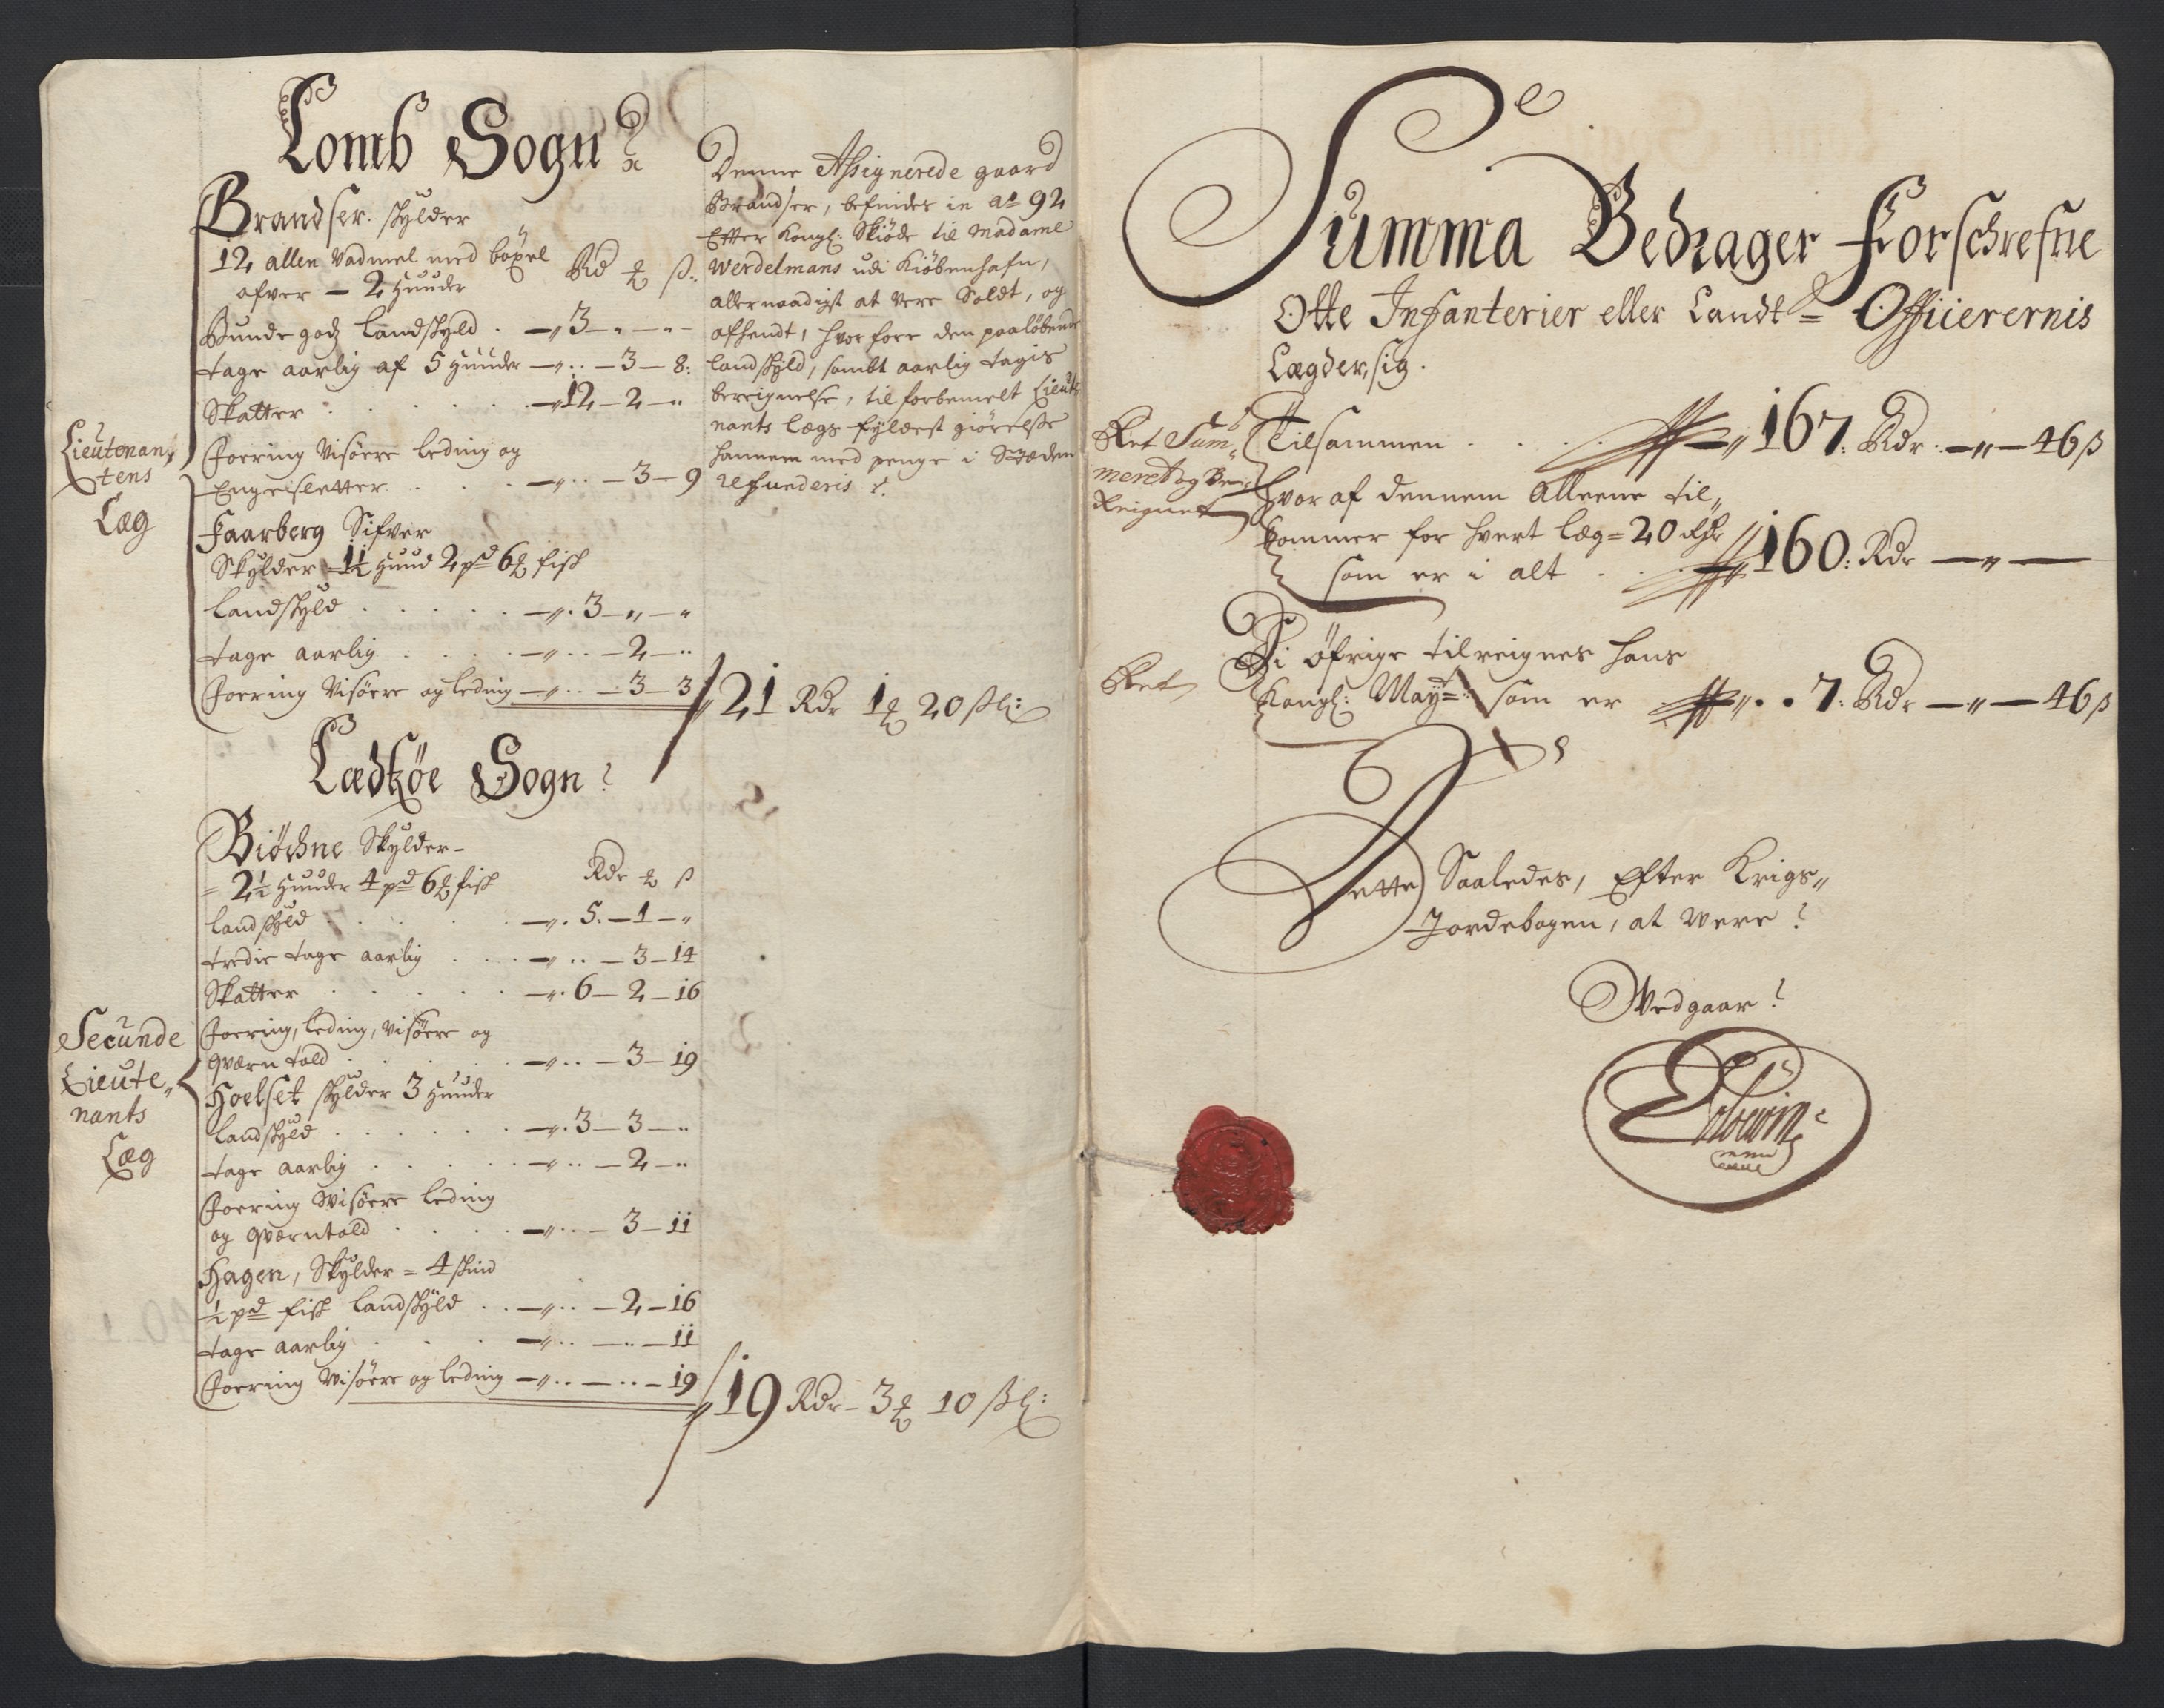 Lomb Sogn
Brandser. skylder
12 allen Vadmel med böxel
ofver — 2 huuder
Rd ß
Bunde godz landskyld . — 3 — " — "
tage aarlig af 5 huuder — " — 3 — 8:
Skatter — 12 — 2 — "
Lieutenan,
tens
Læg
Foering Visöere leding og
Engesletter — " — 3 — 9
Faarberg Sifver
Skylder 1½ huud 2 pd 6 fisk
landskyld — 3 — " — "
tage aarlig — " — 2 — "
Foering Visöere og leding — " — 3 — 3
21 Rdr 1 20 ß
Denne Assignerede gaard
Brandser, befindes in ao 92
Efter Kongl: Skiöde til Madame
Werdelmans udi Kiöbenhafn,
allernaadigst at vere Soldt, og
afhendt, hvorfore den paalöbende
landskyld, sambt aarlig tagis
bereignelse, til forbemelt Lieute
nants lægs fyldest giörelse
hannem med penge i Stæden
refunderis
Lædköe Sogn
Biöchne Skylder –
= 2½ huuder 4 pd 6 fisk
Rdr ß
landskyld — 5 — 1 — "
tredie tage aarlig — " — 3 — 14
Skatter — 6 — 2 — 16
Secunde
Lieute,,
nants
Læg
Foering, leding, visöere og
qværn told — " — 3 — 19
Hoelset skylder 3 huuder
landskyld — 3 — 3 — "
tage aarlig — " — 2 — "
Foering Visöere leding
og qværntold — " — 3 — 11
Hagen, Skylder = 4 skind
½ pd fisk landskyld — " — 2 — 16
tage aarlig — " — " — 11
Foering Visöere og leding — " — " — 19
19 Rdr – 3 10 ß
Summa Bedrager Forschrefne
Otte Infanterier eller Landt = Officerernis
Lægder, sig.
Ret Sum,
meret og Be,
Reignet
Tilsammen 167: Rdr — " — 46 ß
hvor af dennem alleene til,,
kommer for hvert læg = 20 Rdr
som er i alt 160: Rdr — " —
Ret
Di öfrige tilreignes hans
Kongl: Mayt = som er 7: Rdr — " — 46 ß
Dette Saaledes, Efter Krigs,,
Jordebogen, at Were
Wedgaar